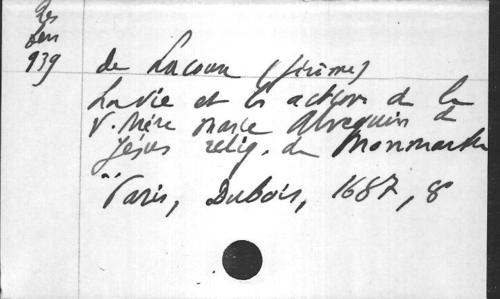 939
de Lacoux (Jérôme)
La vie et les actions de la
V. Mère Marie Alvequin de
Jésus relig. de Monmartre
Paris, Dubois, 1687, 8